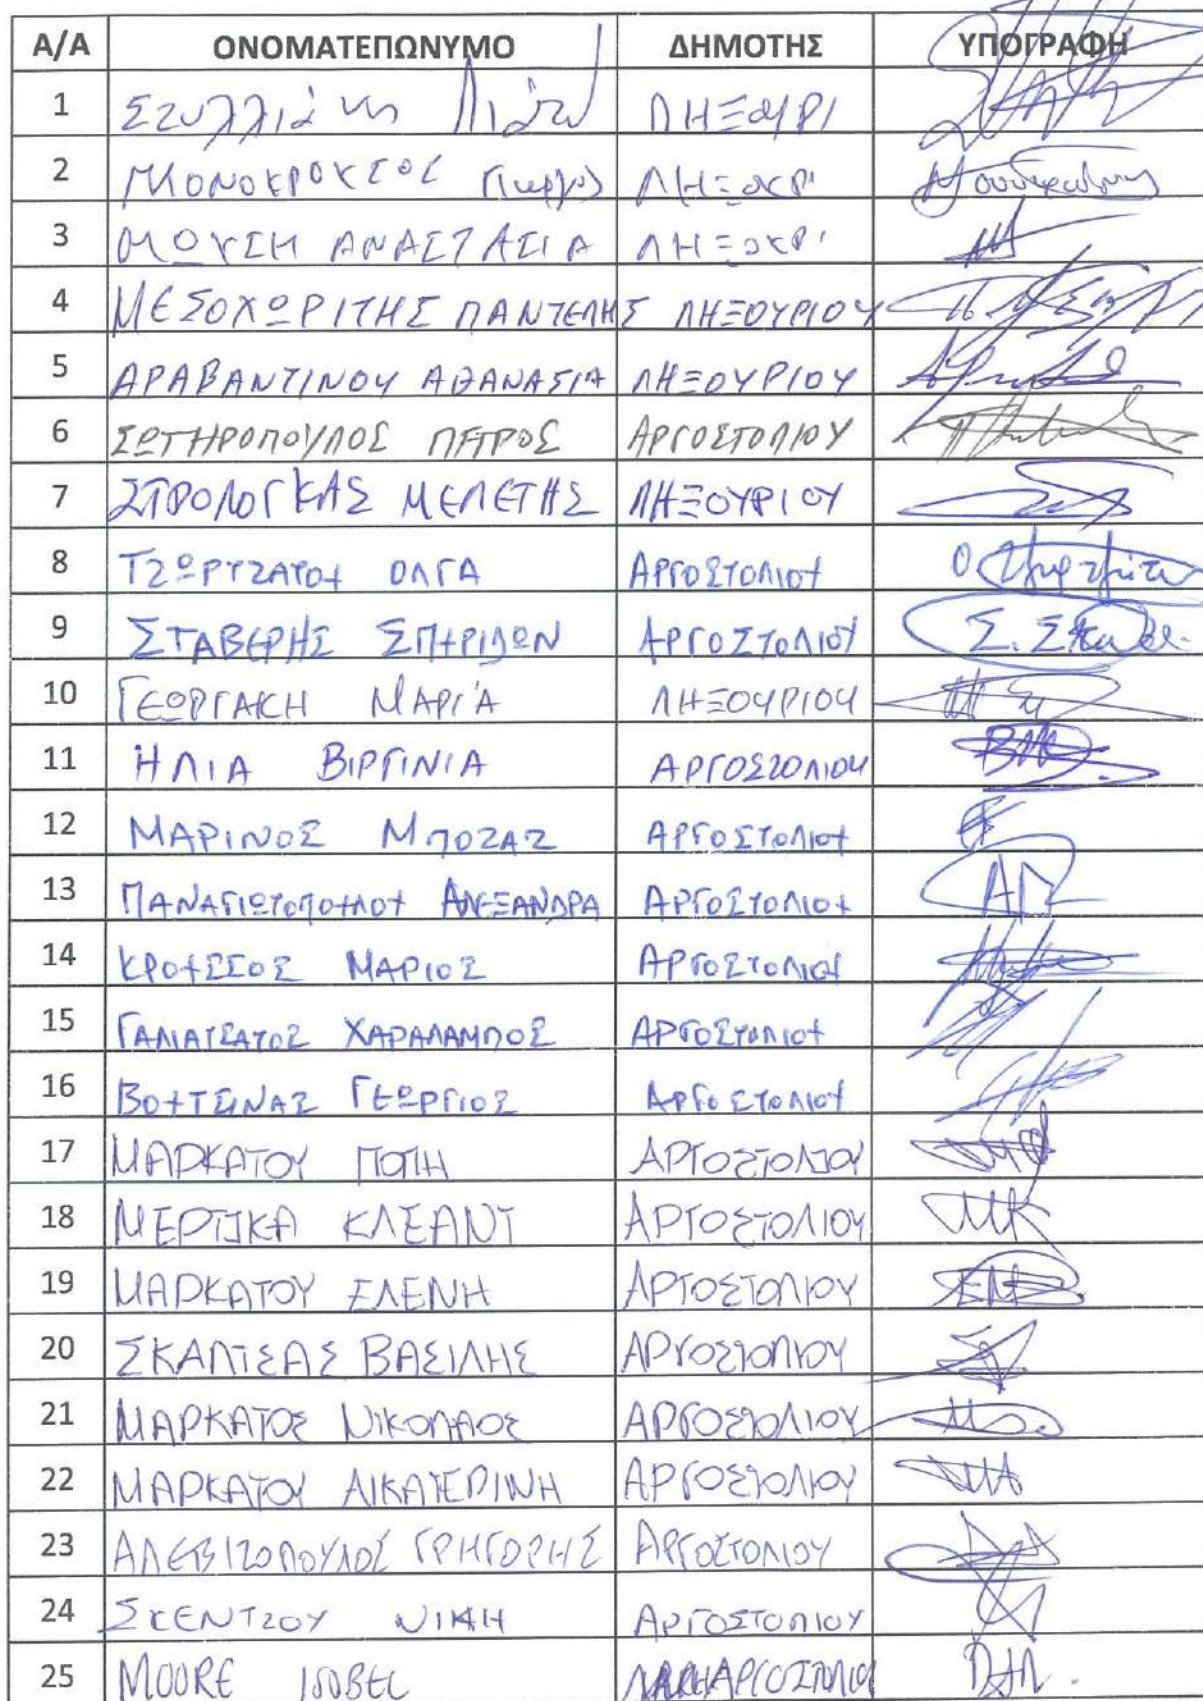 Α/Α ΟΝΟΜΑΤΕΠΩΝΥΜΟ ΔΗΜΟΤΗΣ ΥΠΟΓΡΑΦΗ
1 ΛΗΞΟΥΡΙ
2 ΜΟΝΟΚΡΟΥΣΟΣ Γιωργος ΛΗΞΟΥΡΙ
3 ΜΩΥΣΗ ΑΝΑΣΤΑΣΙΑ ΛΗΞΟΥΡΙ
4 ΜΕΣΟΧΩΡΙΤΗΣ ΠΑΝΤΕΛΗΣ ΛΗΞΟΥΡΙΟΥ
5 ΑΡΑΒΑΝΤΙΝΟΥ ΑΘΑΝΑΣΙΑ ΛΗΞΟΥΡΙΟΥ
6 ΣΩΤΗΡΟΠΟΥΛΟΣ ΠΕΤΡΟΣ ΑΡΓΟΣΤΟΛΙΟΥ
7 ΣΤΡΟΛΟΓΚΑΣ ΜΕΛΕΤΗΣ ΛΗΞΟΥΡΙΟΥ
8 ΤΖΩΡΤΖΑΤΟΥ ΟΛΓΑ ΑΡΓΟΣΤΟΛΙΟΥ
9 ΣΤΑΒΕΡΗΣ ΣΠΥΡΙΔΩΝ ΑΡΓΟΣΤΟΛΙΟΥ
10 ΓΕΩΡΓΑΚΗ ΜΑΡΙΑ ΛΗΞΟΥΡΙΟΥ
11 ΗΛΙΑ ΒΙΡΓΙΝΙΑ ΑΡΓΟΣΤΟΛΙΟΥ
12 ΜΑΡΙΝΟΣ ΜΠΟΖΑΣ ΑΡΓΟΣΤΟΛΙΟΥ
13 ΠΑΝΑΓΙΩΤΟΠΟΥΛΟΥ ΑΛΕΞΑΝΔΡΑ ΑΡΓΟΣΤΟΛΙΟΥ ΑΠ
14 ΚΡΟΥΣΣΟΣ ΜΑΡΙΟΣ ΑΡΓΟΣΤΟΛΙΟΥ
15 ΓΑΛΙΑΤΣΑΤΟΣ ΧΑΡΑΛΑΜΠΟΣ ΑΡΓΟΣΤΟΛΙΟΥ
16 ΒΟΥΤΣΙΝΑΣ ΓΕΩΡΓΙΟΣ ΑΡΓΟΣΤΟΛΙΟΥ
17 ΜΑΡΚΑΤΟΥ ΠΟΠΗ ΑΡΓΟΣΤΟΛΙΟΥ
18 ΜΕΡΤΙΚΑ ΚΛΕΑΝΤ ΑΡΓΟΣΤΟΛΙΟΥ ΜΚ
19 ΜΑΡΚΑΤΟΥ ΕΛΕΝΗ ΑΡΓΟΣΤΟΛΙΟΥ
20 ΣΚΑΛΤΣΑΣ ΒΑΣΙΛΗΣ ΑΡΓΟΣΤΟΛΙΟΥ
21 ΜΑΡΚΑΤΟΣ ΝΙΚΟΛΑΟΣ ΑΡΓΟΣΤΟΛΙΟΥ
22 ΜΑΡΚΑΤΟΥ ΑΙΚΑΤΕΡΙΝΗ ΑΡΓΟΣΤΟΛΙΟΥ ΜΑ
23 ΑΛΕΒΙΖΟΠΟΥΛΟΣ ΓΡΗΓΟΡΗΣ ΑΡΓΟΣΤΟΛΙΟΥ
24 ΣΚΕΝΤΖΟΥ ΝΙΚΗ ΑΡΓΟΣΤΟΛΙΟΥ
25 MOORE ISOBEL ΑΡΓΟΣΤΟΛΙΟΥ